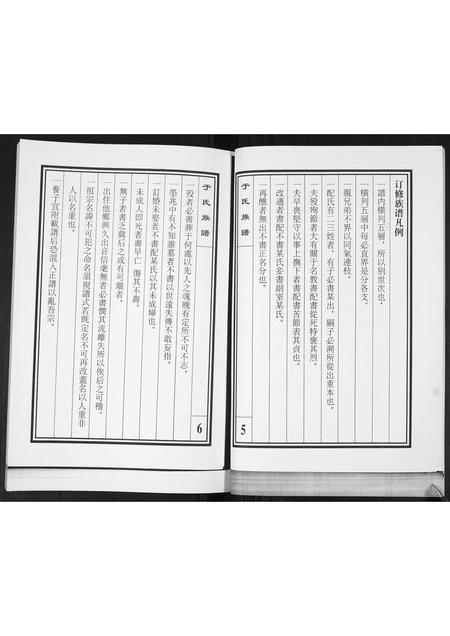 订修族谱凡例
一譜内橫列五層，所以别世次也。
一橫列五層中每必直界是分各支。
親兄弟不界以同氣連枝。
一配氏有二三姓者，有子必書某出，嗣子必溯所從出重本也。
一夫歿殉節者大有關于名教書配書從死特褒其烈。
一夫早喪堅守以事上撫下者書配書苦節表其貞也。
一改適者書配不書某氏妾書副室某氏。
一再醮者無出不書正名分也。
于氏族譜
5
一歿者必書葬于何處以先人之魂魄有定所不可不志。
一塋兆中有不知誰墓者不書以世遠失傳不敢妄指。
一訂婚未娶者不書配某氏以其未成婦也。
一未成人即死者書早亡，傷其不壽。
一無子者書乏嗣后之或有可繼者。
一出住他鄉與久出音信毫無者必書憫其流離失所以俟后之可稽。
一祖宗名諱不可犯之命名須視譜式若既定名不可再改蓋名以人重非
人以名重也。
一養子宜附載譜后恐混入正譜以亂吾宗。
于氏族譜
6